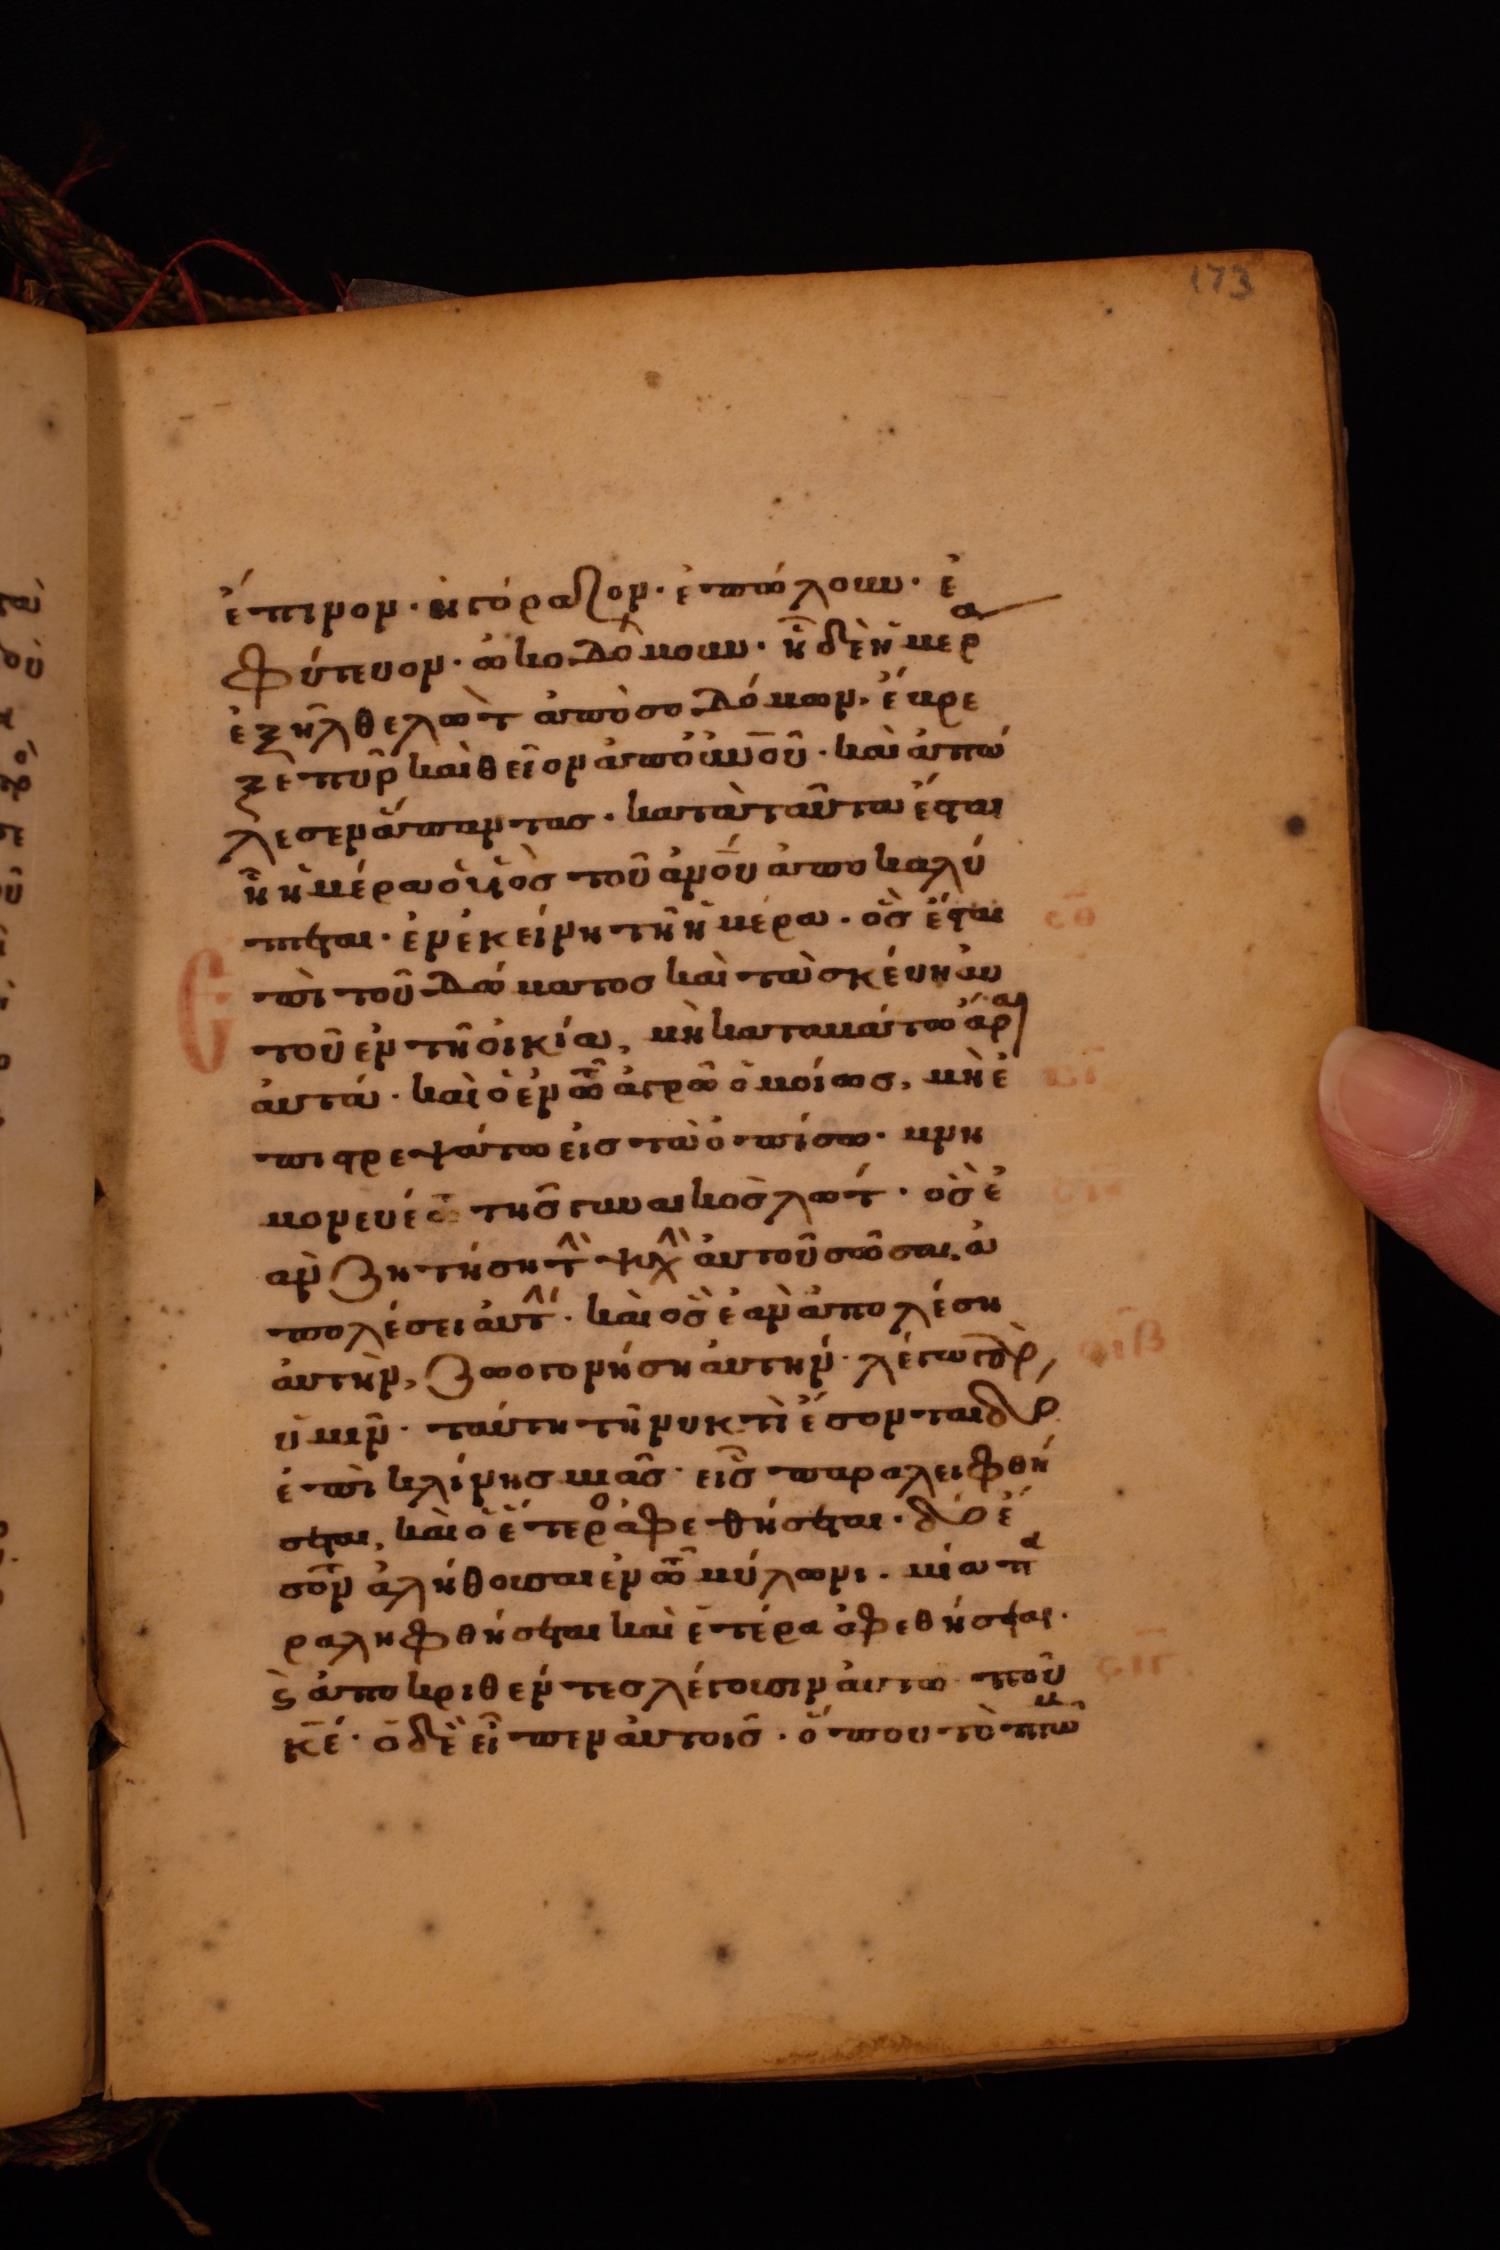 173
ἔπινον· ἠγόραζον· ἐπώλουν· ἐ
φύτευον· ὠκοδόμουν· ἧ δὲ ἡμέρα
ἐξῆλθε λὼτ ἀπὸ σοδόμων· ἔβρε
ξε πῦρ καὶ θεῖον ἀπὸ οὐνοῦ· καὶ ἀπώ
λεσεν ἅπαντας· κατὰ ταῦτα ἔσται
ἧ ἡμέρα ὁ υἱὸς τοῦ ἀνου ἀποκαλύ
πτεται· ἐν ἐκείνη τῆ ἡμέρα· ὃς ἔσται
Ε πὶ τοῦ δώματος καὶ τὰ σκέυη ἀυ
τοῦ ἐν τῆ οἰκία, μὴ καταβάτω ἄραι
ἀυτά· καὶ ὁ ἐν τῶ ἀγρῶ ὁμοίως, μὴ ἐ
πιστρεψάτω εἰς τὰ ὀπίσω· μνη
μονεύετε τῆς γυναικὸς λώτ· ὃς ἐ
ὰν ζητήση τὴν ψυχὴν ἀυτοῦ σῶσαι, ἀ
πολέσει ἀυτήν· καὶ ὃς ἐὰν ἀπολέση
ἀυτὴν, ζωογονήση ἀυτήν· λέγω γὰρ,
ὑμῖν· ταύτη τῆ νυκτὶ ἔσονται δύο
ἐπὶ κλίνης μιᾶς· εἷς παραλειφθή
σεται, καὶ ὁ ἕτερος ἀφεθήσεται· δύο ἔ
σονται ἀλήθουσαι ἐν τῶ μύλωνι· μία πα
ραληφθήσεται καὶ ἑτέρα ἀφεθήσεται·
ϛ ἀποκριθέντες λέγουσιν ἀυτω ποῦ
κε· ὁ δὲ εἶπεν ἀυτοῖς· ὅπου τὸ πτῶμα